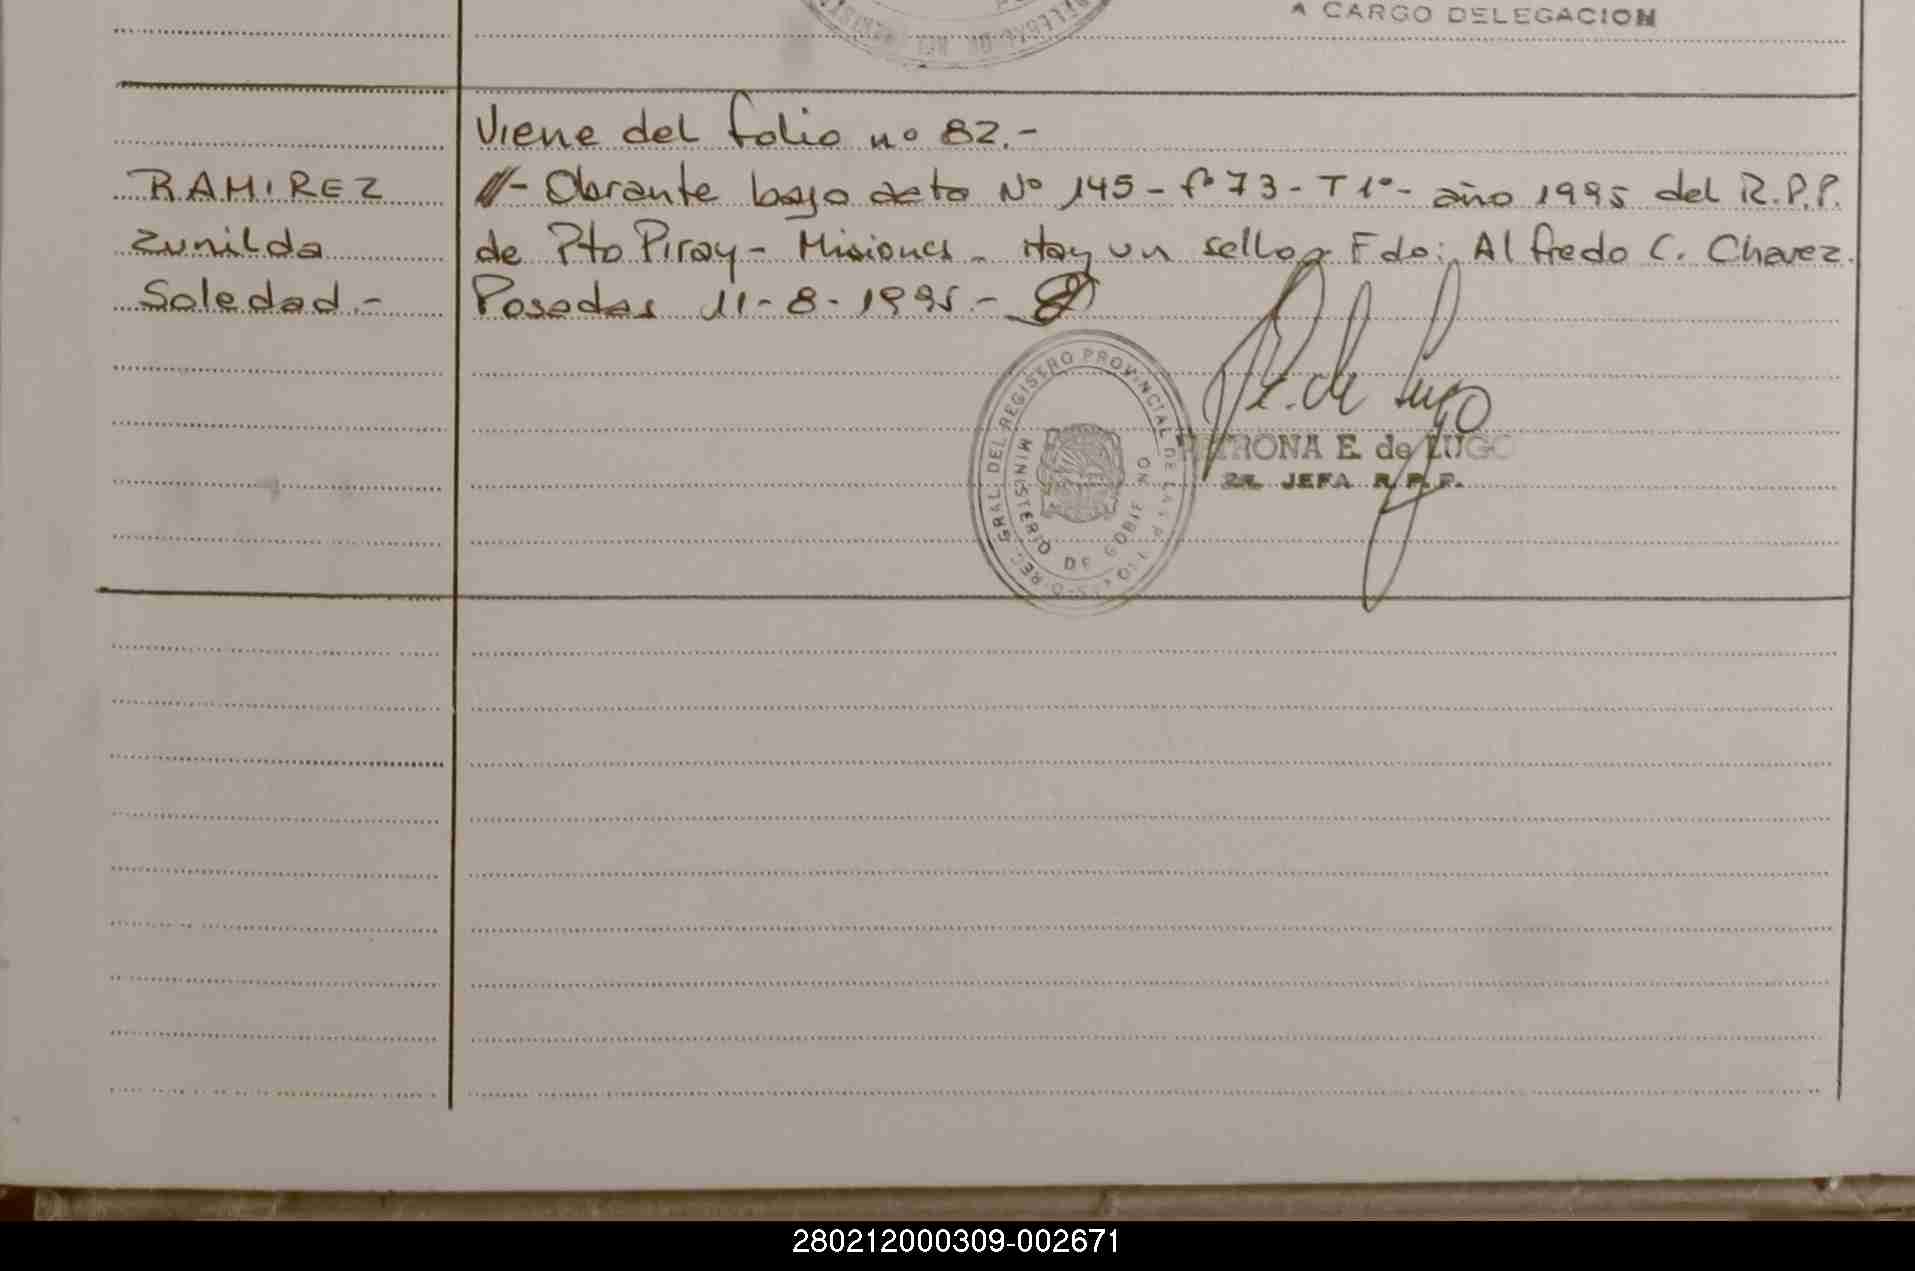 A CARGO DELEGACION
Viene del folio nº 82.-
RAMIREZ
Zunilda
Soledad.-
//- Obrante bajo acta Nº 145 - fº 73 - T 1º - año 1995 del R.P.P.
de Pto Piray - Misiones. Hay un sello. Fdo: Alfredo C. Chavez.
Posadas 11-8-1995.-
E. de Lugo
PETRONA E. de LUGO
2ª JEFA R.P.P.
GRAL. DEL REGISTRO PROVINCIAL DE LAS
MINISTERIO DE GOBIERNO
280212000309-002671